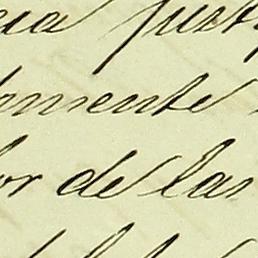 cia just
mente
or de las